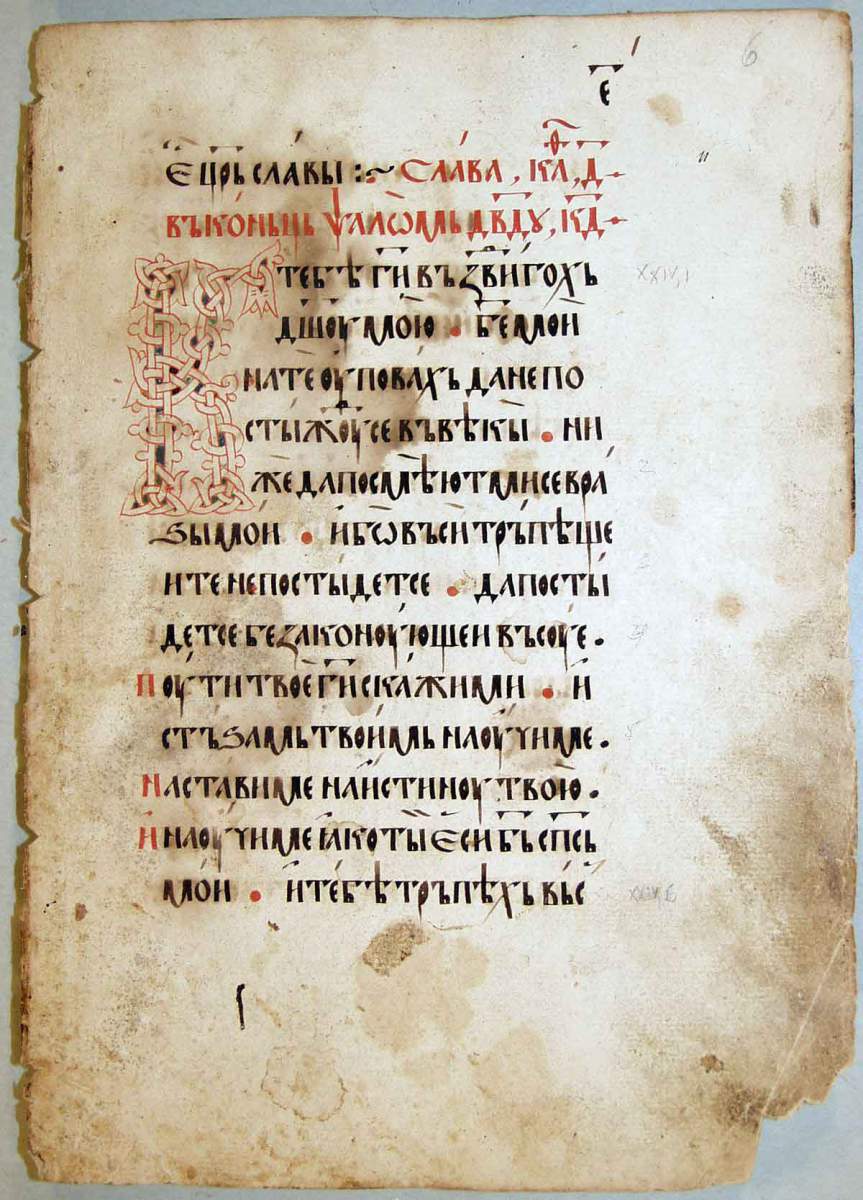 6
е҃
Ѥ цр҃ь славы :~ Слава, кⷶ҇ѳ, д҃
въ коньць ѱалѡмь дв҃дѹ, к҃д
К тебѣ г҃и въздвигохь
д҃шоу мою • б҃е мои
на те оуповахь да не по
стыжоу се въ вѣкы • ни
же да посмѣют ми се вра
ѕы мои • ибѡ въси трьпѣще
и те не постыдетсе • да посты
детсе безаконоующеи въ соуѥ •
Поути твое г҃и скажи ми • и
стъѕамь твоимь наоучи ме •
Настави ме на истиноу твою •
И наоучи ме ꙗко ты ѥси б҃ь сп҃сь
мои • и тебѣ трьпѣхь вьс